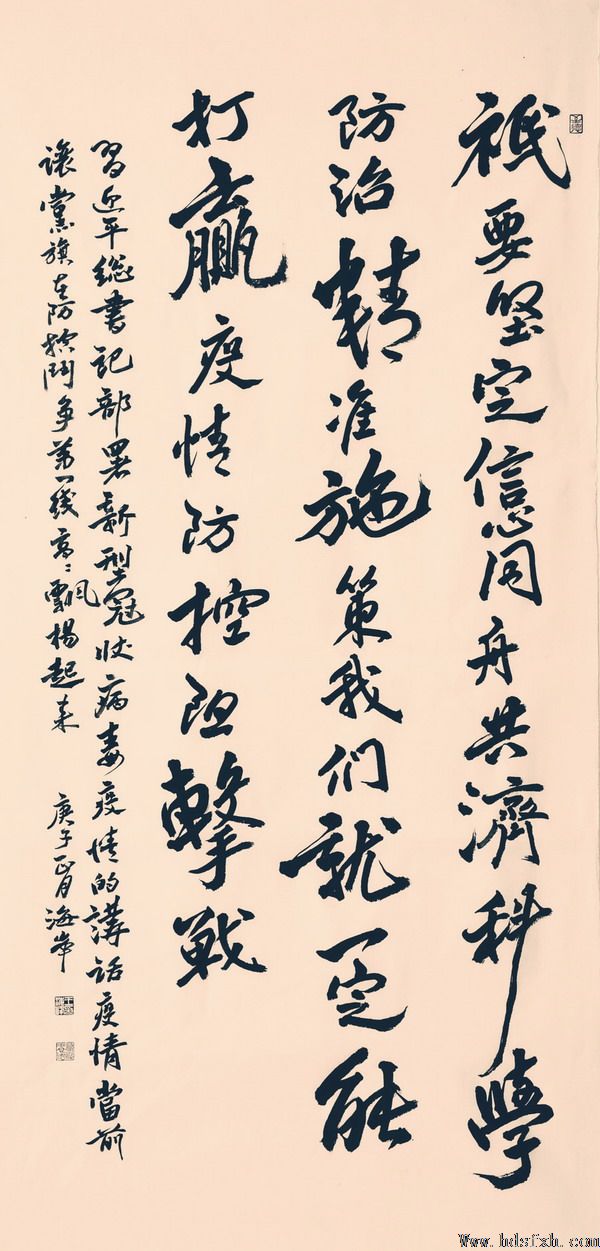 祇要坚定信心同舟共济科学
防治精准施策我们就一定能
打赢疫情防控阻擊战
習近平總書記部署新型冠状病毒疫情的講话疫情當前
讓黨旗在防控鬥争第一线高〻飘楊起来
庚子正月海峯
Www.hdsfxh.com